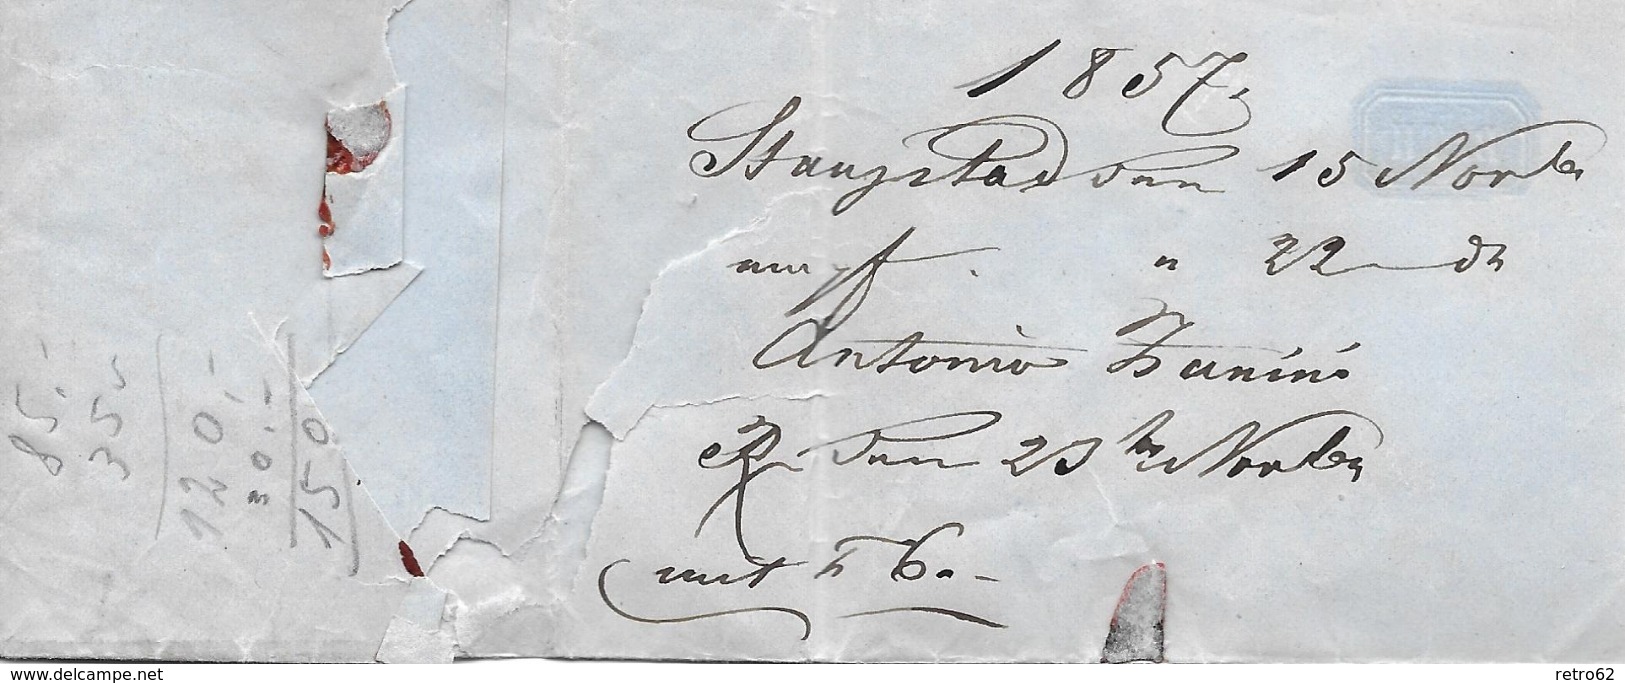 1857.
Stansstad den 15 Novbr
empf. " 22 do
Antonio Zanini
R den 23tn Novbr
mit f 6.-
85.-
35
120.-
30.-
150
www.delcampe.net
retro62